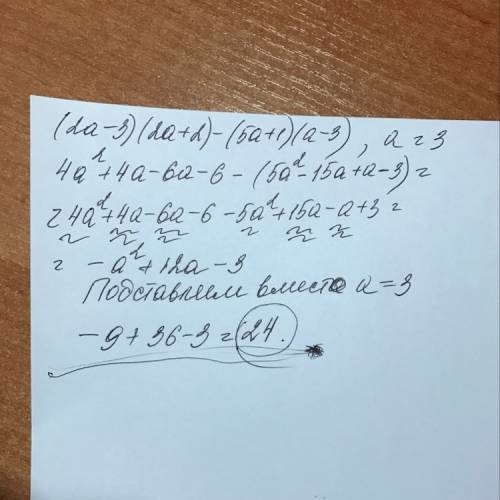 (2a-3)(2a+2)-(5a+1)(a-3), a=3
4a²+4a-6a-6-(5a²-15a+a-3)=
=4a²+4a-6a-6-5a²+15a-a+3=
= -a²+12a-3
Подставляем вместо a=3
-9+36-3=24.